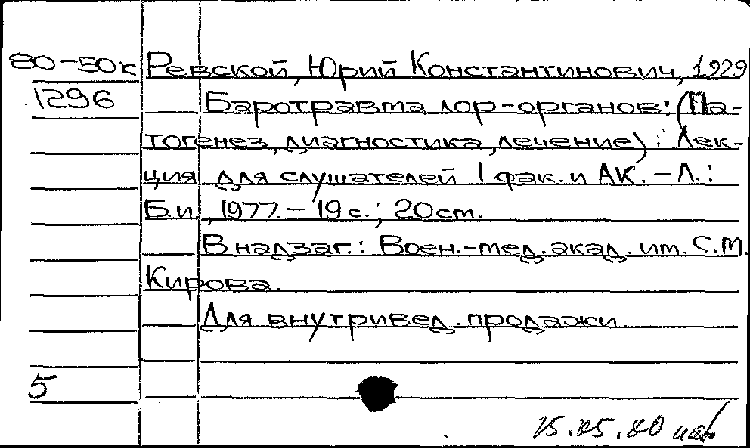 80-50к Ревской, Юрий Константинович, 1929
1296 Баротравма лор-органов: (Па-
тогенез, диагностика, лечение): Лек-
ция для слушателей I фак. и АК. - Л.:
Б.и., 1977. - 19 с.; 20 см.
В надзаг.: Воен.-мед. акад. им. С.М.
Кирова.
Для внутривед. продажи.
5